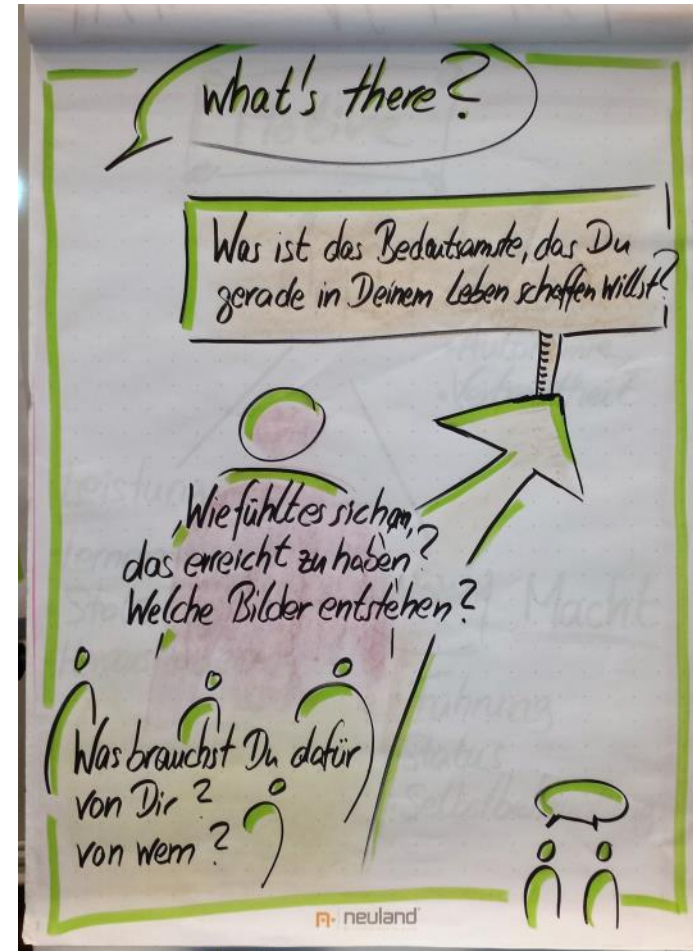 what's there?
Was ist das Bedeutsamste, das Du
gerade in Deinem Leben schaffen willst?
Wie fühlt es sich an,
das erreicht zu haben?
Welche Bilder entstehen?
Was brauchst Du dafür
von Dir?
von wem?
Leistung
Macht
Führung
Status
neuland